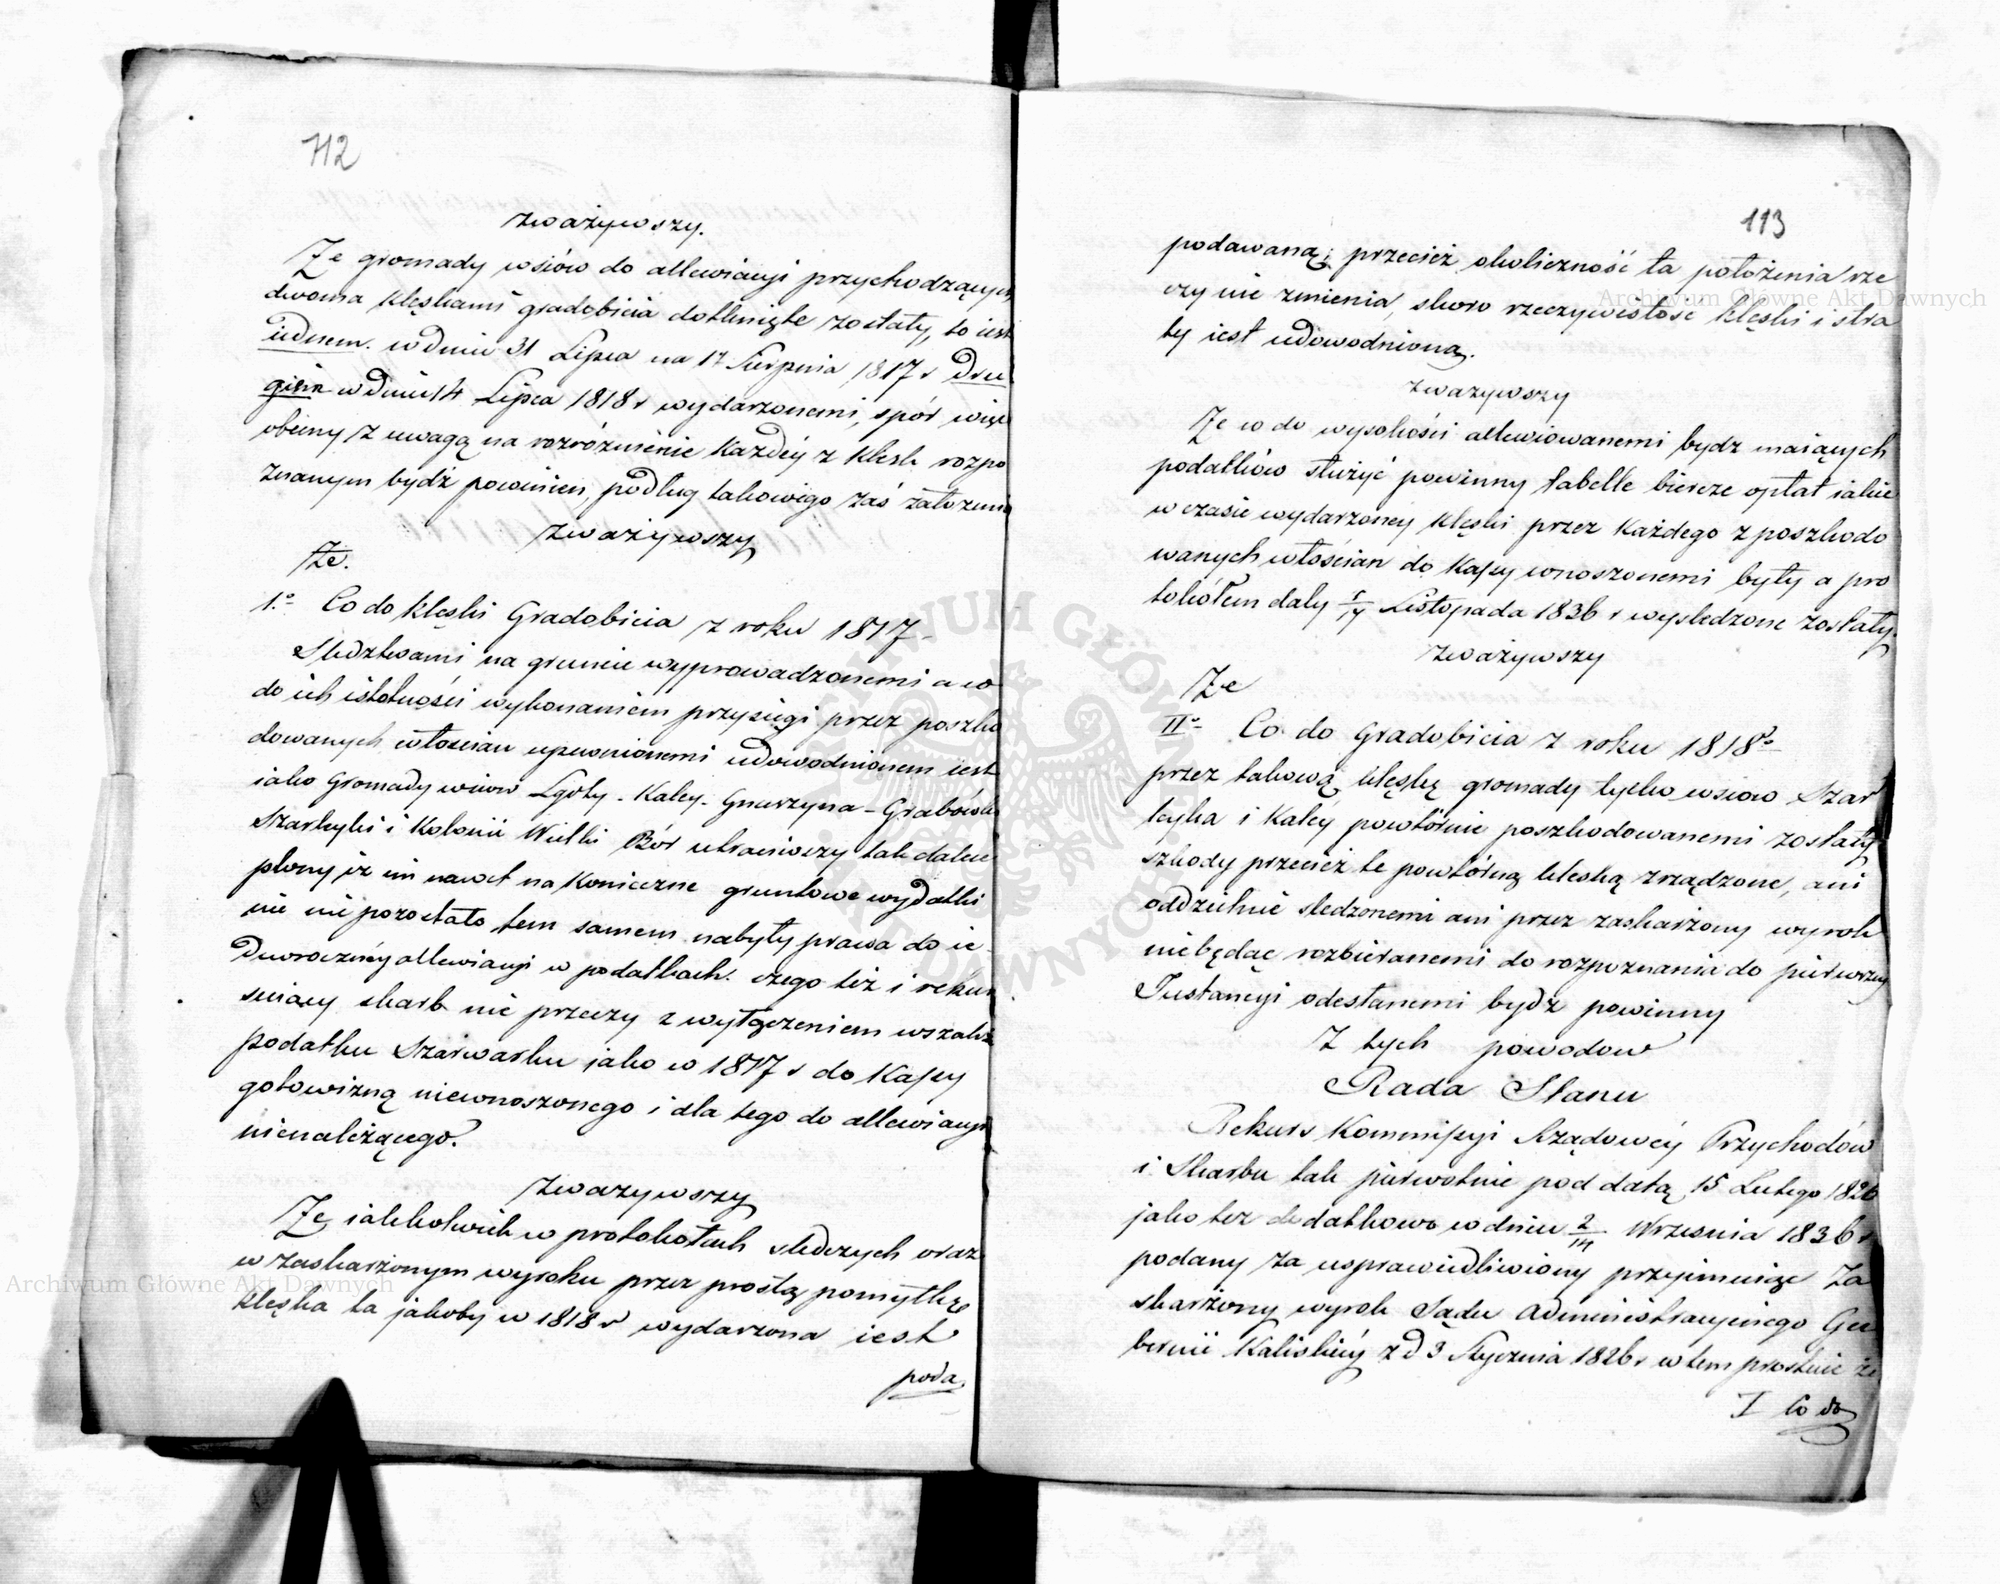 112
zważywszy.
Że gromady wsiów do allewiacyi przychodzących
dwoma klęskami gradobicia dotknięte zostały, to iest
iednem. w dniu 31 Lipca na 1 Sierpnia 1817 r dru
giém w dniu 14 Lipca 1818 r wydarzonemi, spór więc
obecny z uwagą na rozróżnienie każdéy z klęsk rozpo
znanym bydź powinien, podług takowego zaś założenia
zważywszy
Że.
1.o Co do klęski Gradobicia z roku 1817 -
Śledztwami na gruncie wyprowadzonemi a co
do ich istotności wykonaniem przysięgi przez poszko
dowanych włościan upewnionemi udowodnionem iest
iako Gromady wsiow Lgoty - Kaley - Gnaszyna - Grabówki
Szarleyki i Kolonii Wielki Bór utraciwszy tak dalece
plony iż im nawet na konieczne gruntowe wydatki
nic nie pozostało, tem samem nabyły prawa do ie
dnorocznéy allewiacyi w podatkach. czego też i rekur
suiący skarb nie przeczy z wyłączeniem wszakże
podatku Szarwarku jako w 1817 r do Kassy
gotowizną niewnoszonego i dla tego do allewiacyi
nienależącego.
zważywszy
Że iakkolwiek w protokołach śledczych oraz
w zaskarżonym wyroku przez prostą pomyłkę
klęska ta jakoby w 1818 r wydarzona iest
poda
113
podawaną; przecież okoliczność ta położenia rze
czy nie zmienia, skoro rzeczywistość klęski i stra
ty iest udowodnioną.
zważywszy
Że co do wysokości allewiowanemi bydź maiących
podatków służyć powinny tabelle biercze opłat iakie
w czasie wydarzoney klęski przez każdego z poszkodo
wanych włościan do Kassy wnoszonemi były a pro
tokółem daty Listopada 1836 r wyśledzone zostały.
zważywszy
Że
IIo Co do Gradobicia z roku 1818go
przez takową klęskę gromady tylko wsiow Szar
leyka i Kaley powtórnie poszkodowanemi zostały
szkody przecież te powtórną klęską zrządzone, ani
oddzielnie śledzonemi ani przez zaskarżony wyrok
niebędąc rozbieranemi do rozpoznania do pierwszey
Instancyi odesłanemi bydź powinny
Z tych powodow
Rada Stanu
Rekurs Kommissyi Rządowéy Przychodów
i Skarbu tak pierwotnie pod datą 15 Lutego 1826
jako też dodatkowo w dniu 2/14 Września 1836 r
podany za usprawiedliwiony przyimuiąc Za
skarżony wyrok Sądu Administracyinego Gu
bernii Kaliskiéy z d 3 Stycznia 1826 r w tem prostuie że
I Co do
Archiwum Główne Akt Dawnych
Archiwum Główne Akt Dawnych
ARCHIWUM GŁÓWNE AKT DAWNYCH